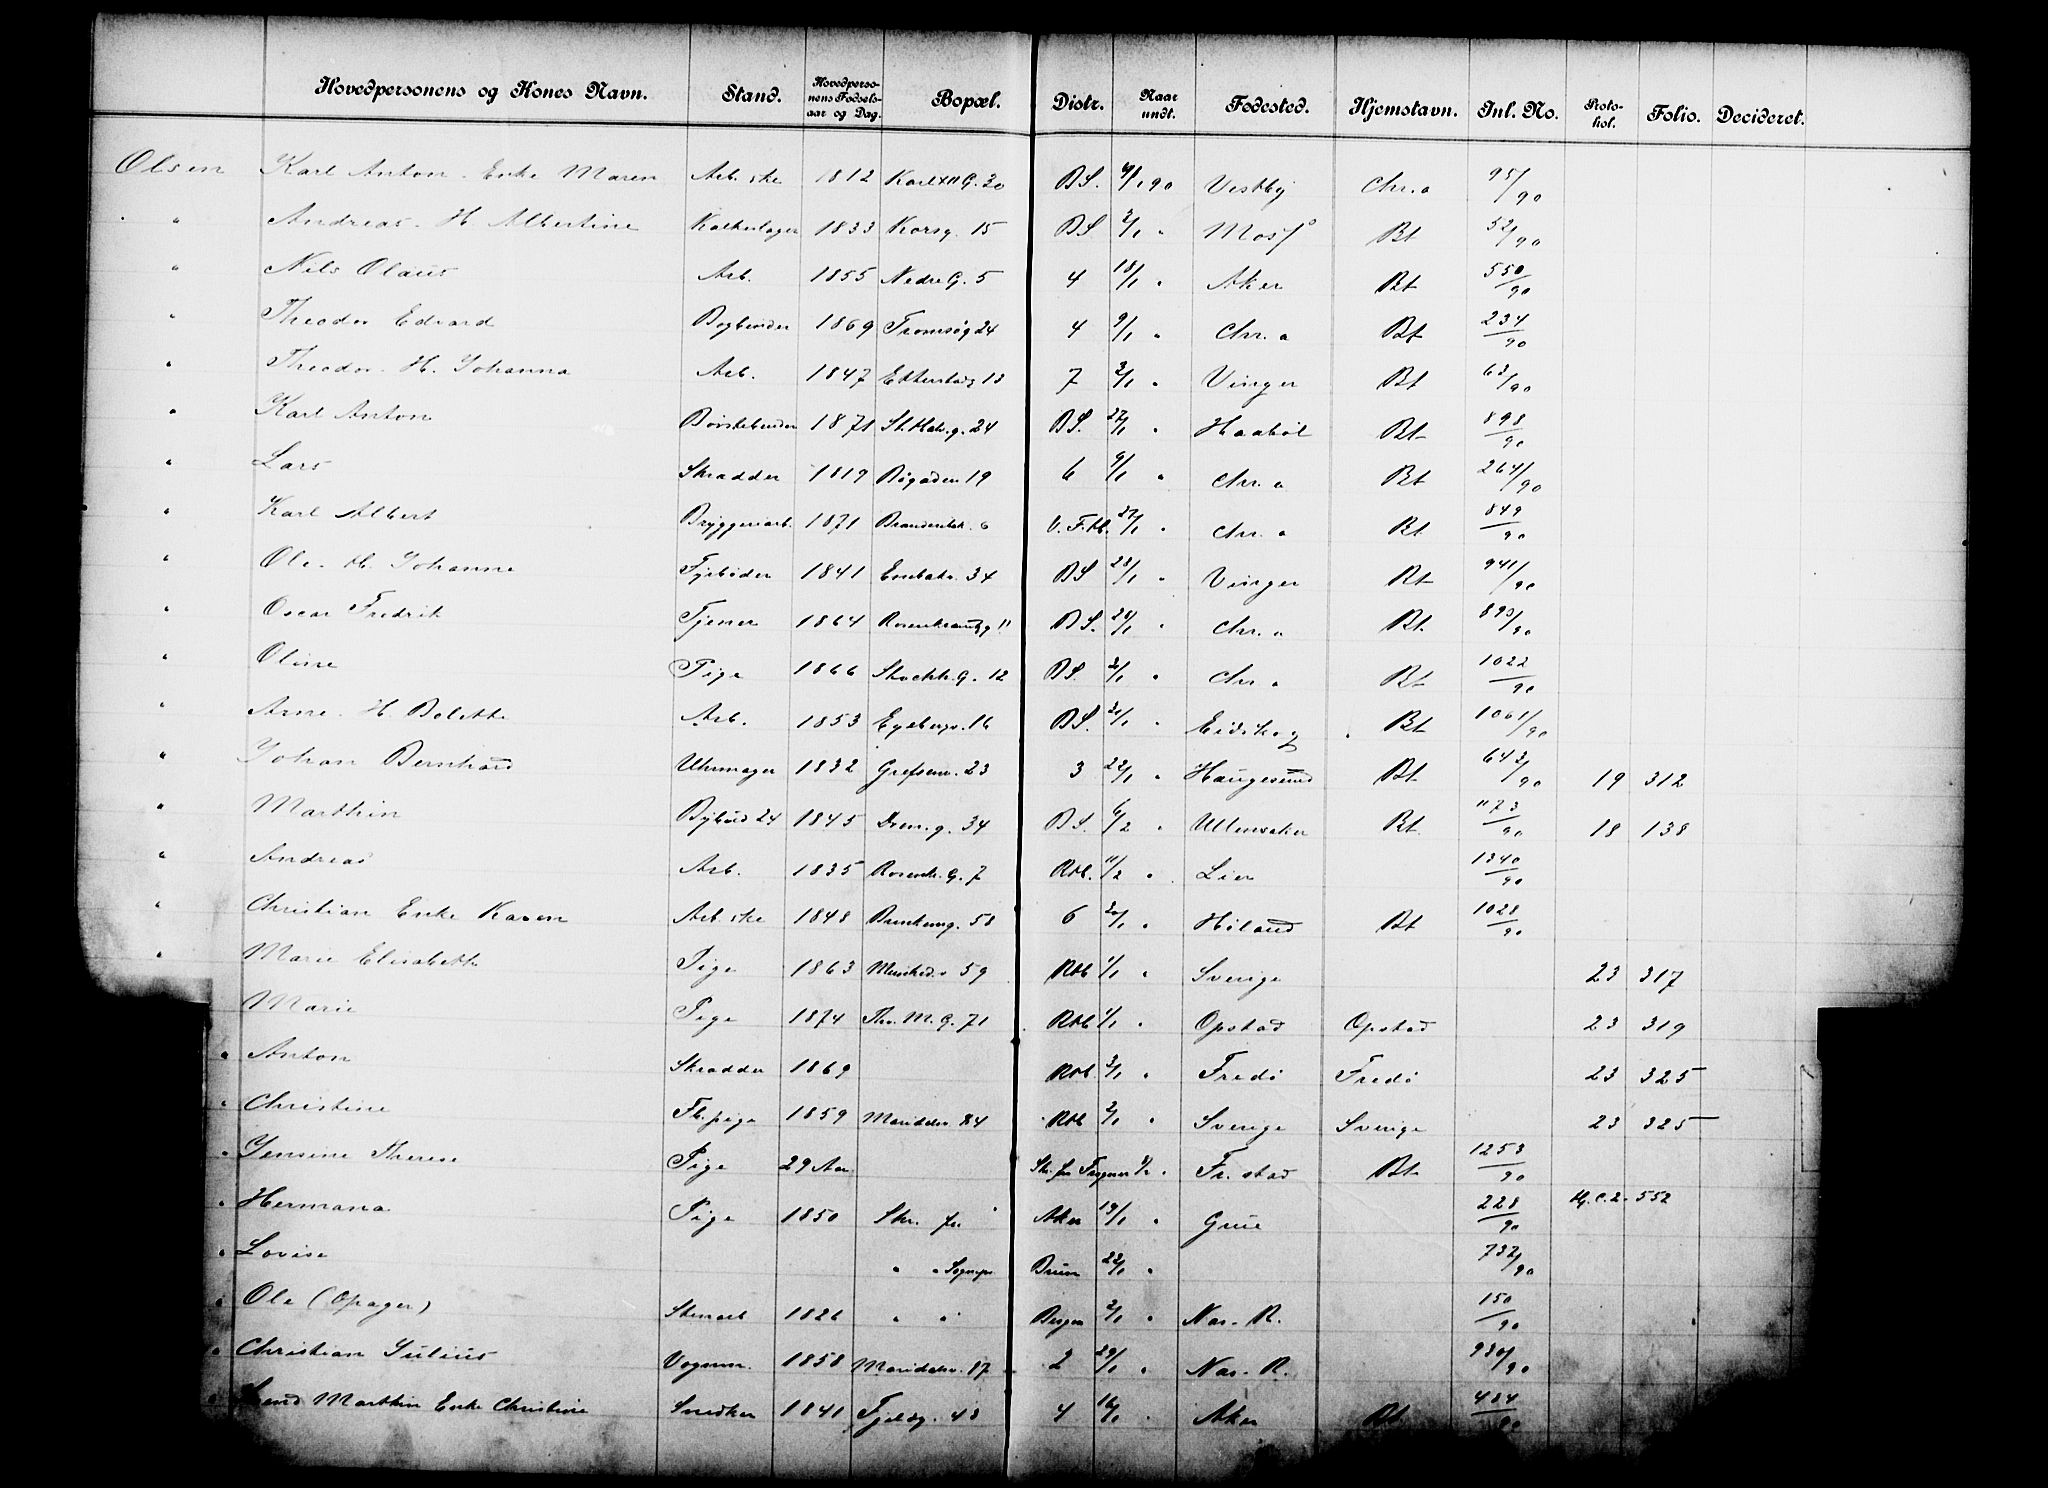 Hovedpersonens og Kones Navn. Stand. Hovedperso-nens Fødsels-aar og Dag. Bopæl. Distr. Naar undt. Fødested. Hjemstavn. Jnl. No. Proto-kol. Folio. Decideret.
Olsen Karl Anton. Enke Maren Arb. ske 1812 Karl XII G. 30 B.S. 4/1 90 Vestby Chr.a 95/90
" Andreas. H. Albertine 1833 Korsg. 15 B S 2/1 " Moss Bt 52/90
" Nils Olaus Arb. 1855 Nedre G. 5 4 18/1 " Aker Bt 550/90
" Theodor Edvard Bogbinder 1869 Tromsøg 24 4 9/1 " Chr.a Bt 234/90
" Theodor. H. Johanna Arb. 1847 Etterstadg 13 7 2/1 " Vinger Bt 63/90
" Karl Anton Børstebinder 1871 St. Halv. g. 24 B S. 27/1 " Haabøl Bt 898/90
" Lars Skradder 1819 Bøgaden 19 6 9/1 " Chr.a Bt 264/90
" Karl Albert Bryggeriarb. 1871 6 V. F. H. 27/1 " Chr.a Bt 849/90
" Ole. H. Johanne Fyrbøder 1841 Enebakv. 34 B S 28/1 " Vinger Bt 941/90
" Oscar Fredrik Tjener 1864 Rosenkrantzg 11 B S. 28/1 " Chr.a Bt. 893/90
" Oline Pige 1866 Stockh. G. 12 B S. 1/1 " Chr.a Bt 1022/90
" Arne. H. Bolette Arb. 1853 Egebergv. 16 B S. 31/1 " Eidskog Bt 1061/90
" Johan Bernhard Uhrmager 1832 Grefsenv. 23 3 22/1 " Haugesund Bt 643/90 19 312
" Marthin Bybud 24 1845 Dram. g. 34 B S. 6/2 " Ullensaker Bt. 1173/90 18 138
" Andreas Arb. 1835 Rosenkr. G. 7 Rtb. 11/2 " Lier 1340/90
" Christian Enke Karen Arb. ske 1848 Brinkeng. 58 6 30/1 " Høland Bt 1028/90
" Marie Elisabeth Pige 1863 Munkedv 59 Rtb 1/1 " Sverige 23 317
" Marie Pige 1874 Thv. M. G. 71 Rtb 1/1 " Opstad Opstad 23 319
" Anton Skradder 1869 Rtb. 2/1 " Fredö Fredö 23 325
" Christine Fb. pige 1859 Maridalsv. 84 Rtb 2/1 " Sverige Sverige 23 325
" Jensine Therese Pige 29 Aar Skr. fra Frogner 1/2 " Fr. stad Bt 1253/90
" Hermana Pige 1850 Skr. fra Aker 19/1 " Grue 228/90 H. C. 2. 552
" Lovise " " Sognepr. Bruun 22/1 " 732/90
" Ole (Opager) Stenarb 1826 " " Bergen 2/1 " Nas. R. 150/90
" Christian Julius Vognm. 1858 Maridalsv. 87 2 29/1 " Nas. R. 930/90
" Marthin Enke Christine Snedker 1841 Fjeldg. 43 4 16/1 " Aker Bt 484/90